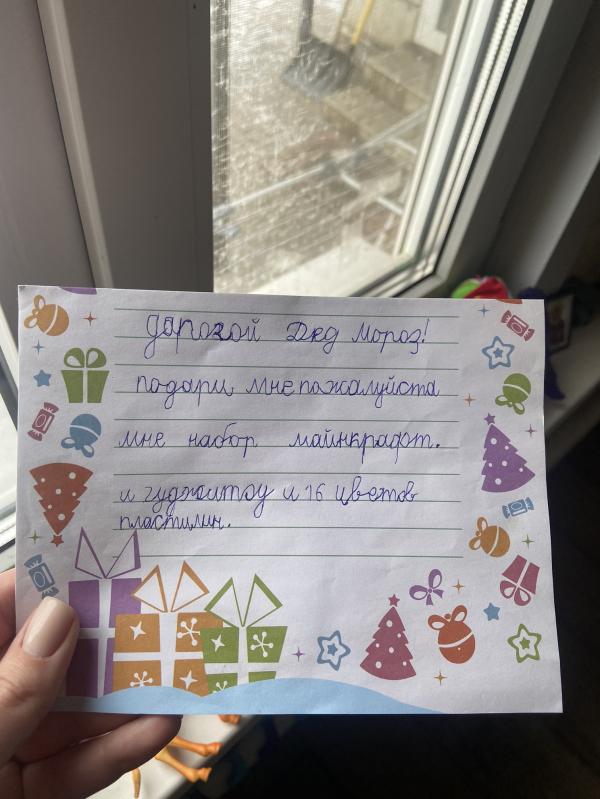 дарогой Дед мороз!
подари мне пожалуйста
мне набор майнкрафт.
и гуджитсу и 16 цветов
пластилин.